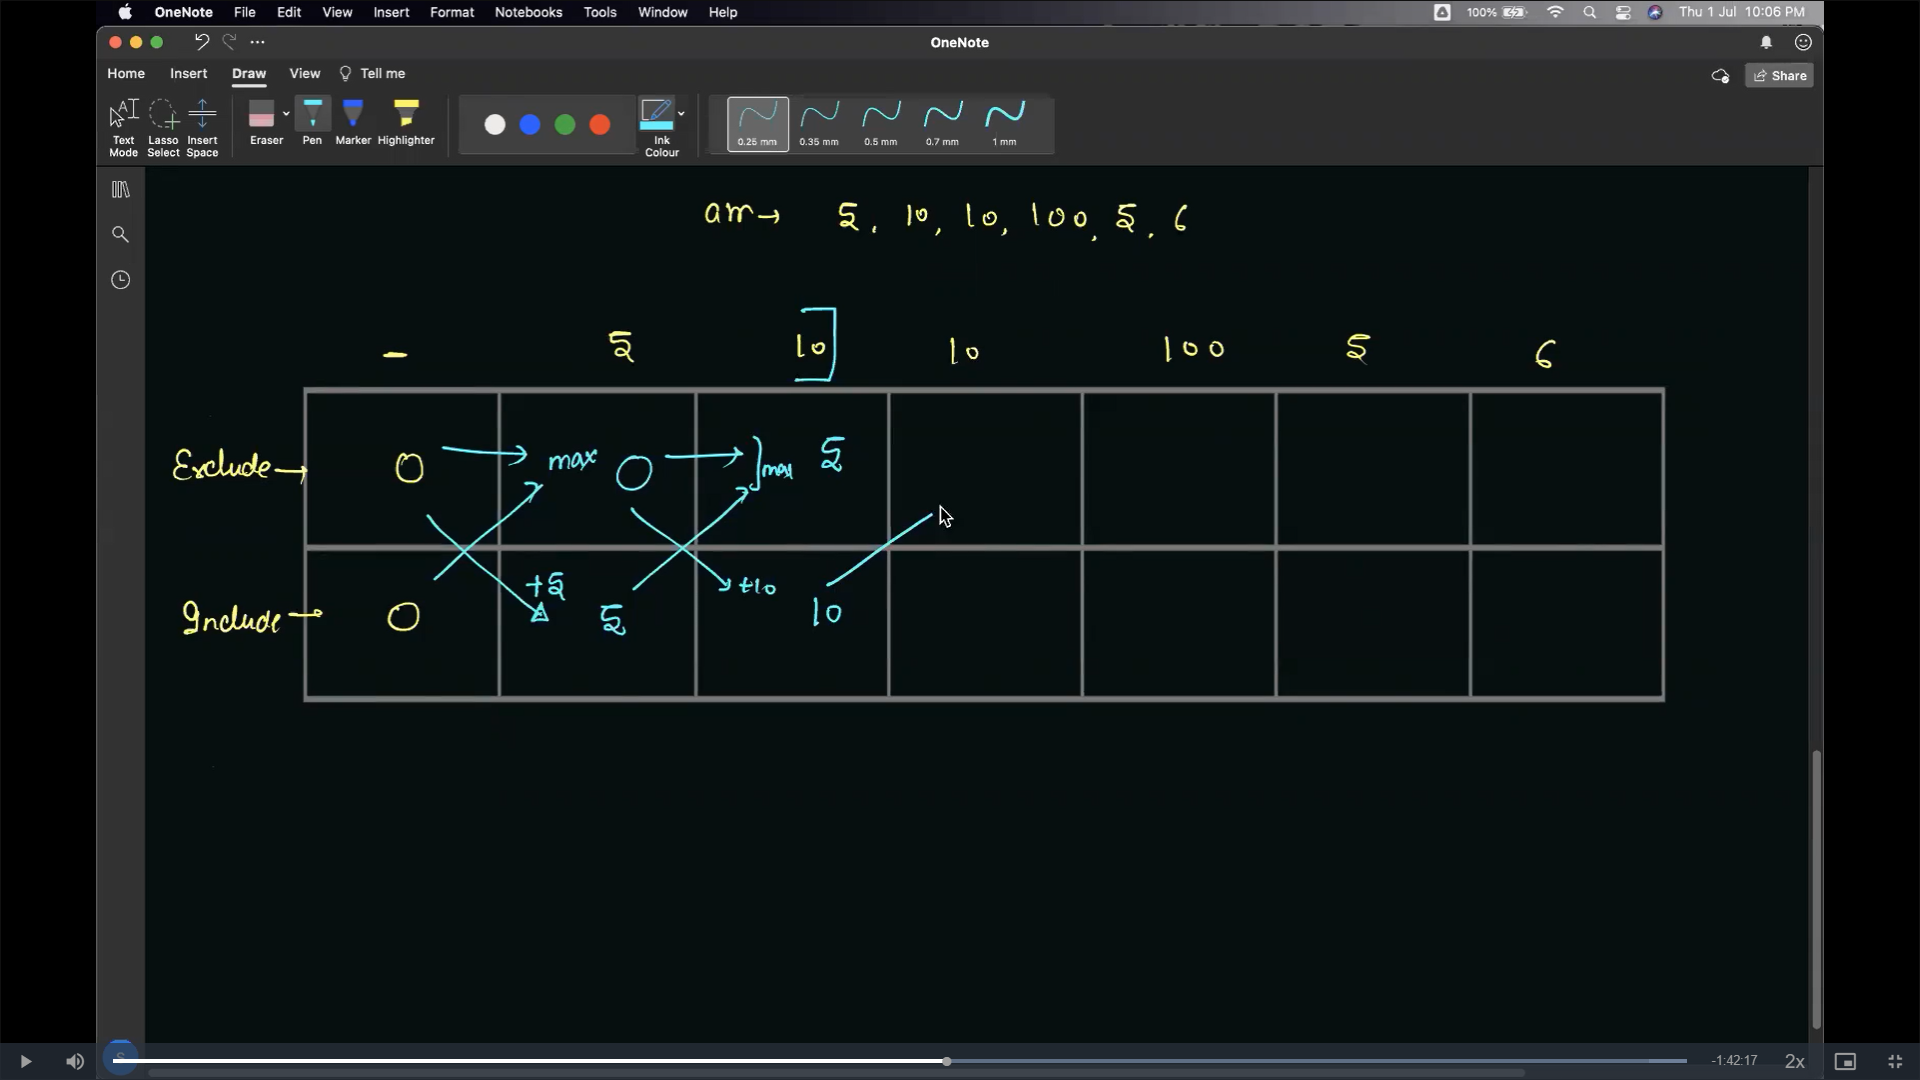 OneNote File Edit View Insert Format Notebooks Tools Window Help 100% Thu 1 Jul 10:06 PM
OneNote
Home Insert Draw View Tell me Share
Text Mode Lasso Select Insert Space Eraser Pen Marker Highlighter Ink Colour 0.25 mm 0.35 mm 0.5 mm 0.7 mm 1 mm
arr→ 5, 10, 10, 100, 5, 6
- 5 10 10 100 5 6
Exclude→ 0 max 0 max 5
+5 +10
Include→ 0 5 10
-1:42:17 2x